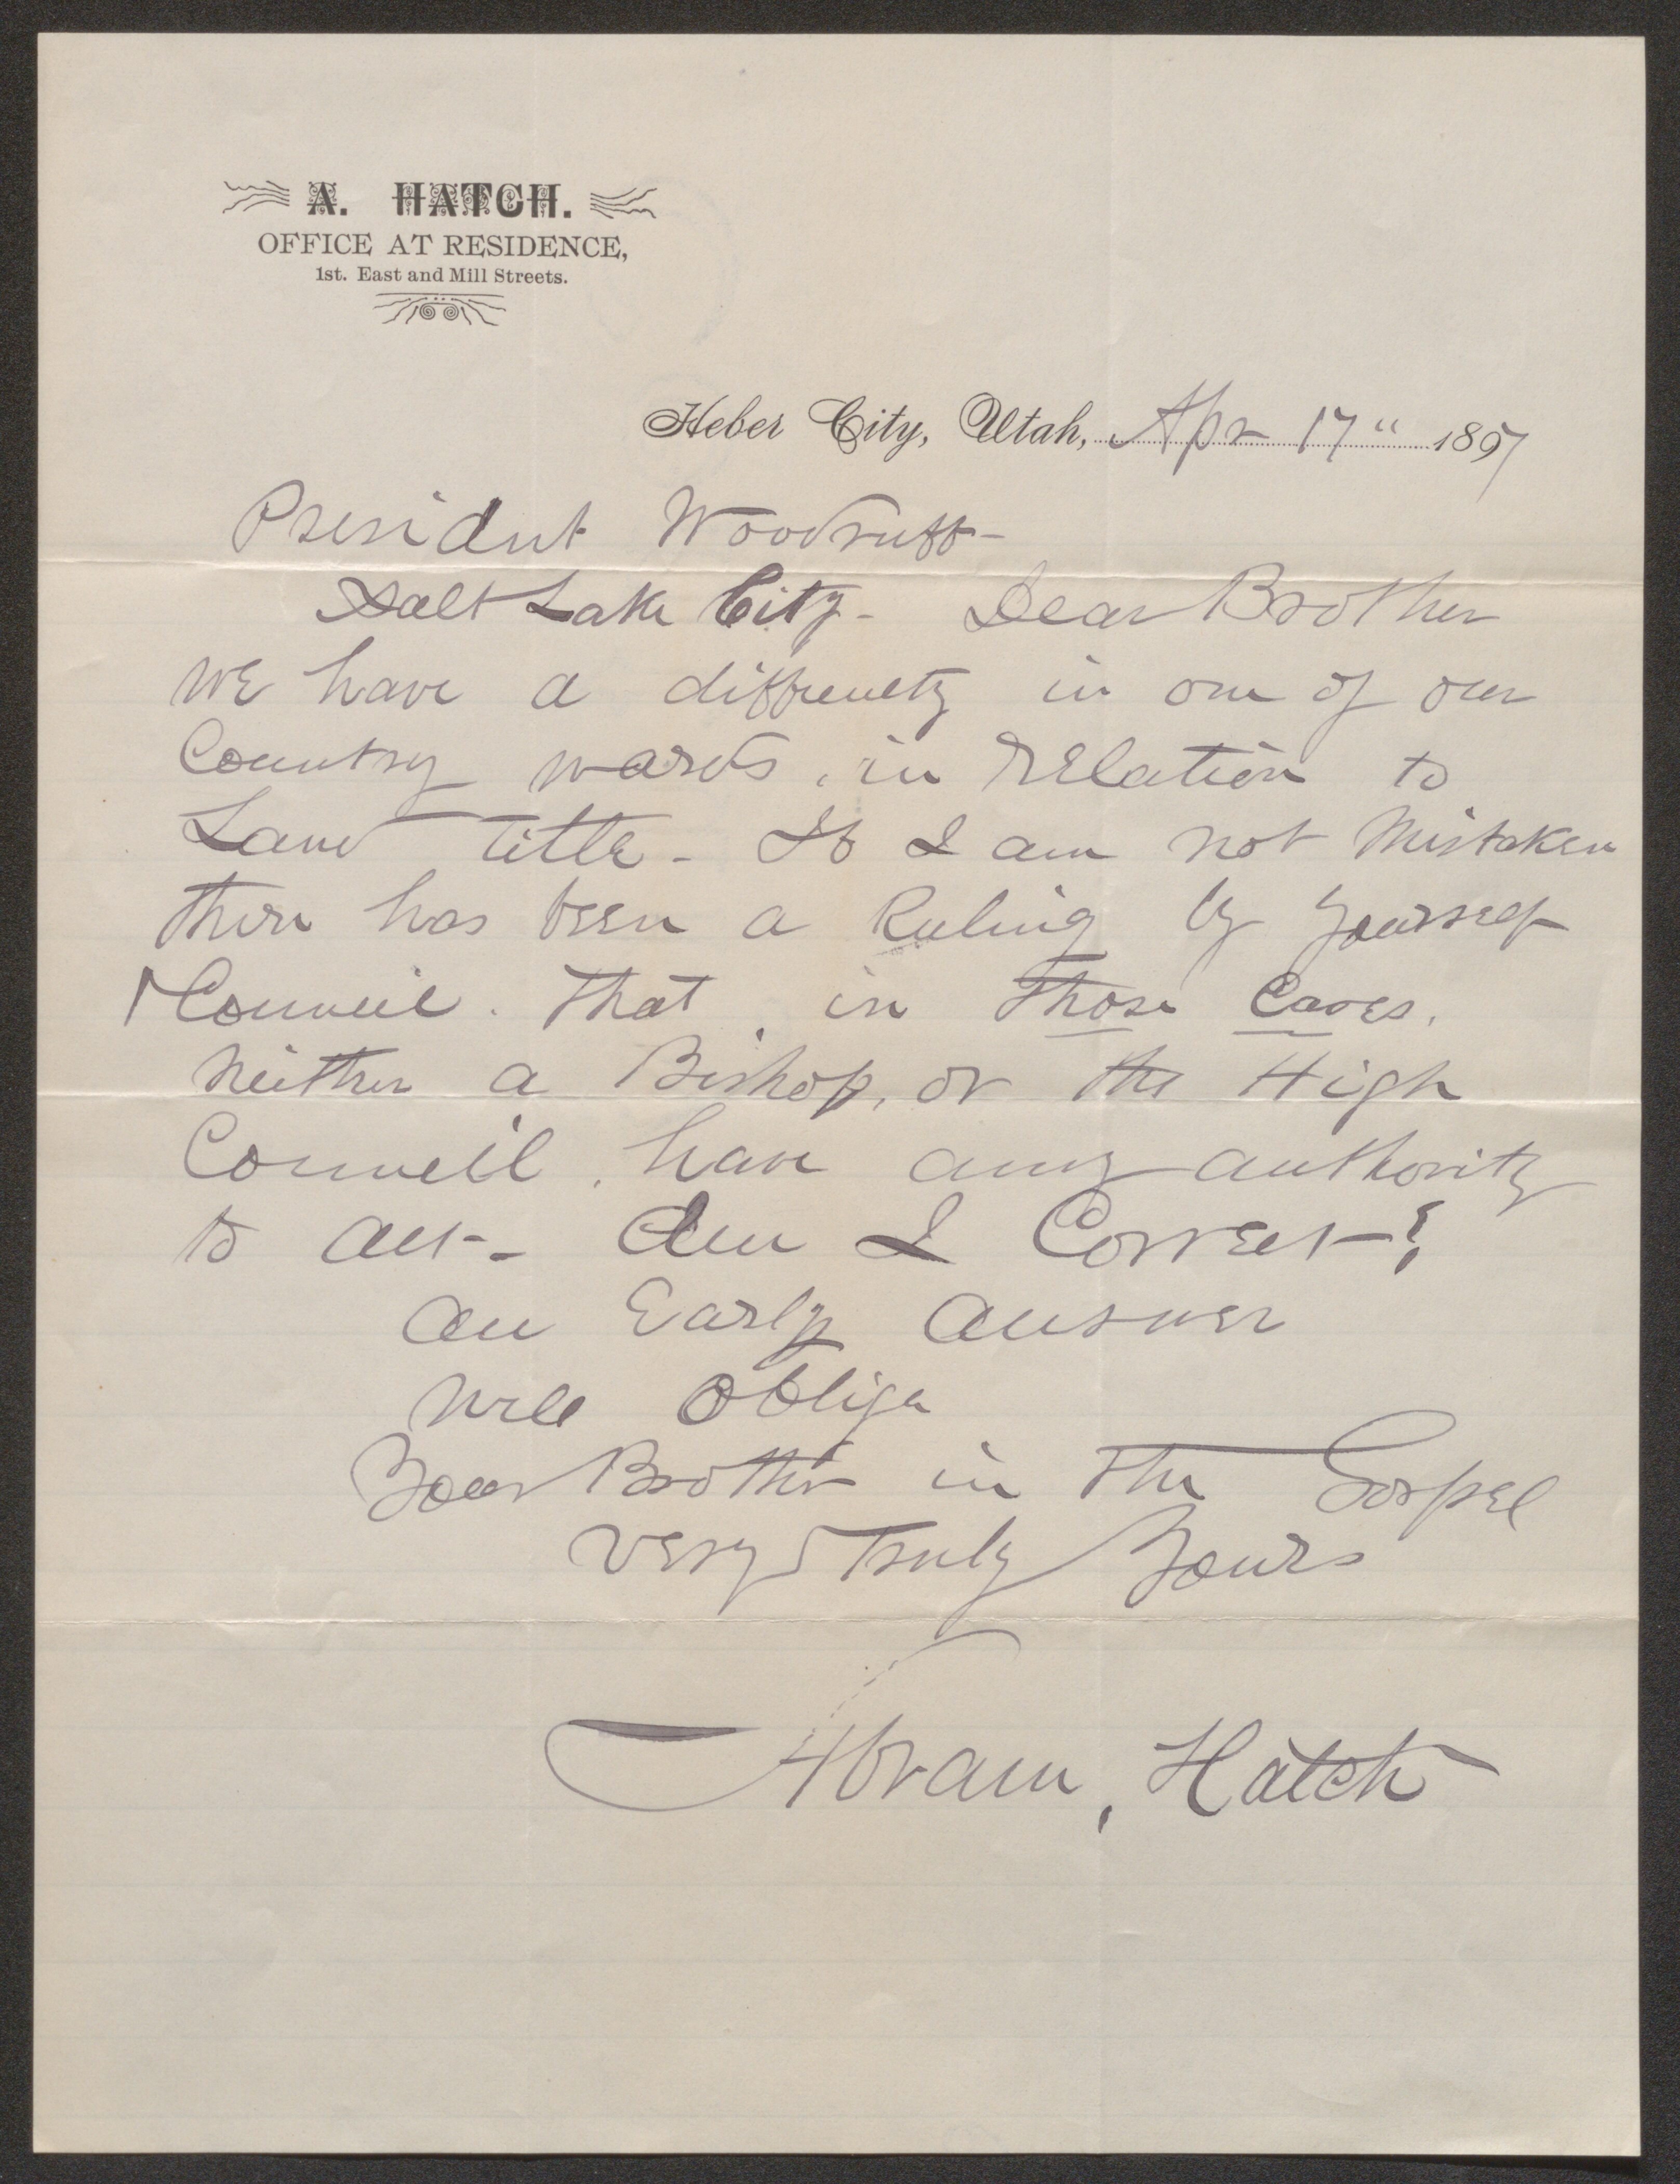 A. HATCH.
OFFICE AT RESIDENCE,
1st. East and Mill Streets.
Heber City, Utah, Apr 17" 1897
President Woodruff-
Salt Lake City- Dear Brother
We have a difficulty in one of our
Country wards, in relation to
Land title- If I am not mistaken
there has been a Ruling by yourself
& Council. That, in those Cases,
neither a Bishop, or the High
Council, have any authority
to act- Am I Correct?
An Early answer
will oblige
Your Brother in the Gospel
Very Truly Yours
Abram, Hatch